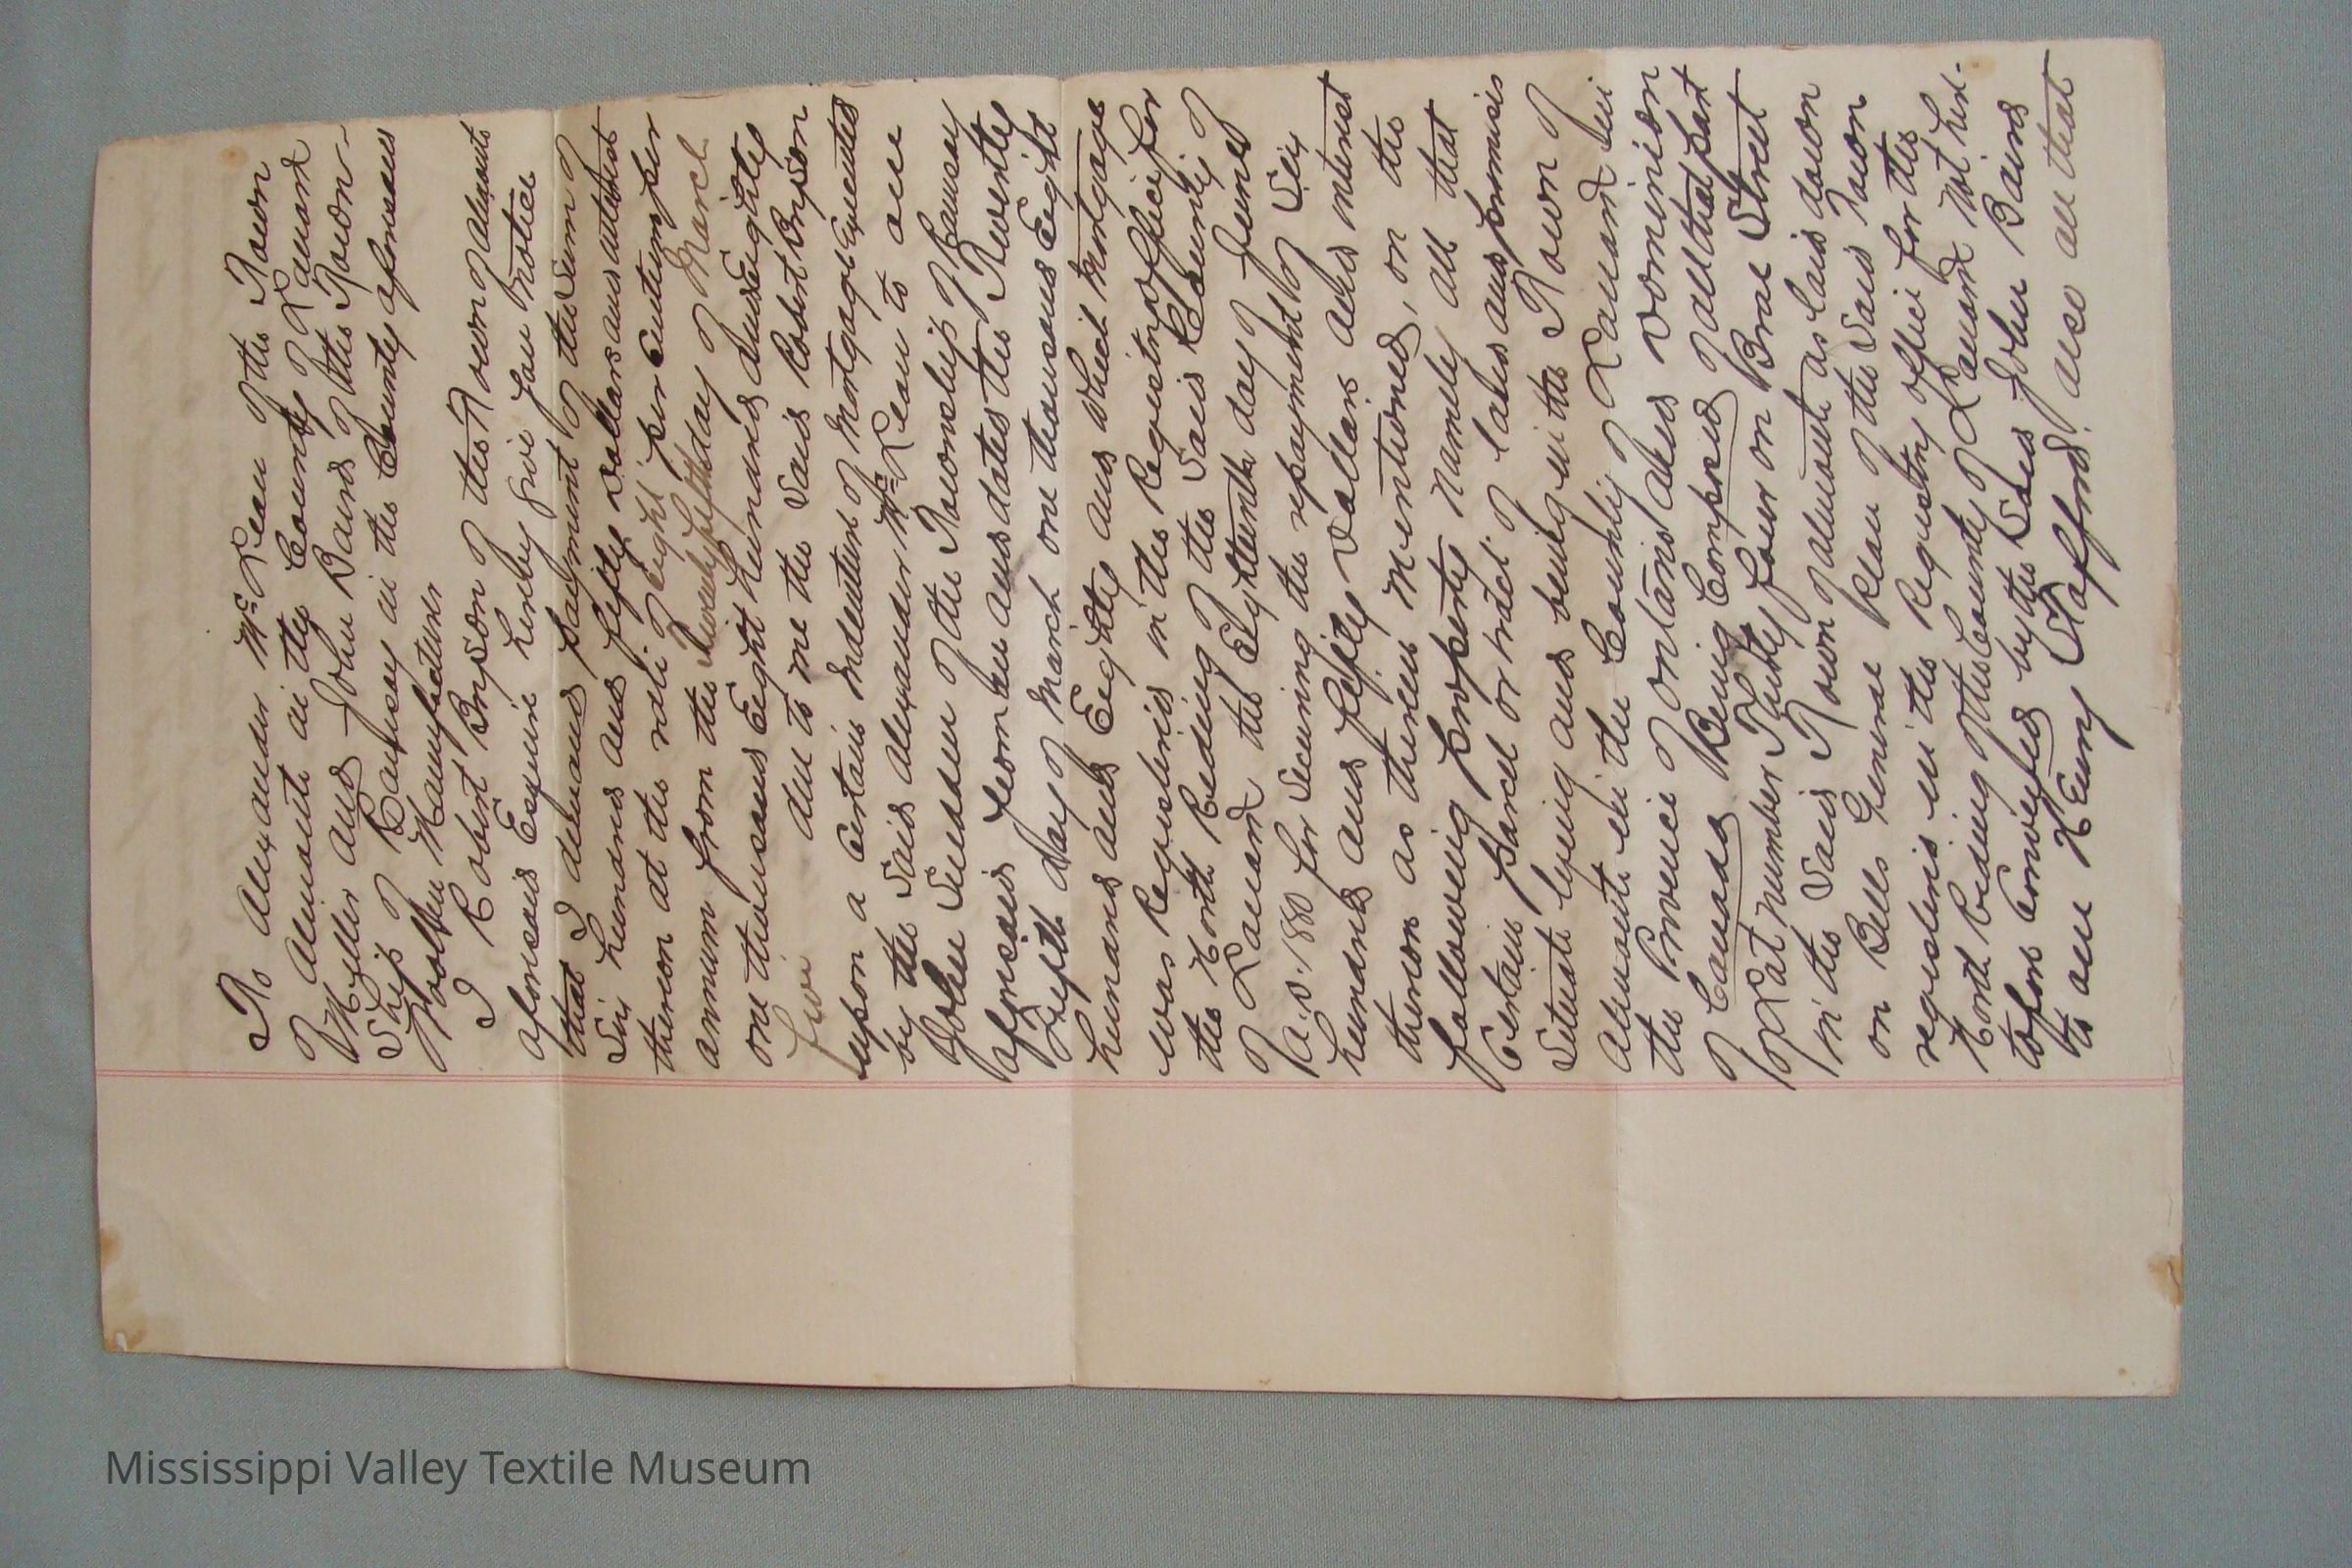 To Alexander McLean of the Town
of Almonte in the County of Lanark
Miller and John Baird of the Town-
Ship of Ramsay in the County aforesaid
Woollen Manufacturer
I Robert Bryson of the Town of Almonte
aforesaid Esquire hereby give you notice
that I demand payment of the Sum of
Six hundred and fifty dollars and interest
thereon at the rate of eight per centum per
annum from the Twenty fifth day of March
one thousand Eight hundred and Eighty
five due to me the Said Robert Bryson
upon a certain Indenture of Mortgage Executed
by the Said Alexander McLean to one
John Sneddon of the Township of Ramsay
aforesaid yeoman and dated the Twenty
Fifth day of March one thousand Eight
hundred and Eighty and which Mortgage
was Registered in the Registry office for
the North Riding of the Said County of
Lanark the Eighteenth day of June
A.D. 1880 for Securing the repayment of Six
hundred and Fifty Dollars and interest
thereon as therein Mentioned, on the
following property namely all that
Certain parcel or tract of land and premises
Situate lying and being in the Town of
Almonte in the County of Lanark in
the Province of Ontario and Dominion
of Canada Being Composed of all that part
of Lot number Thirty four on Brae Street
in the Said Town of Almonte as laid down
on Bells General plan of the Said Town
registered in the Registry office for the
North Riding of the County of Lanark not here-
tofore Conveyed by the Said John Baird
to one Henry Stafford. also all that
Mississippi Valley Textile Museum